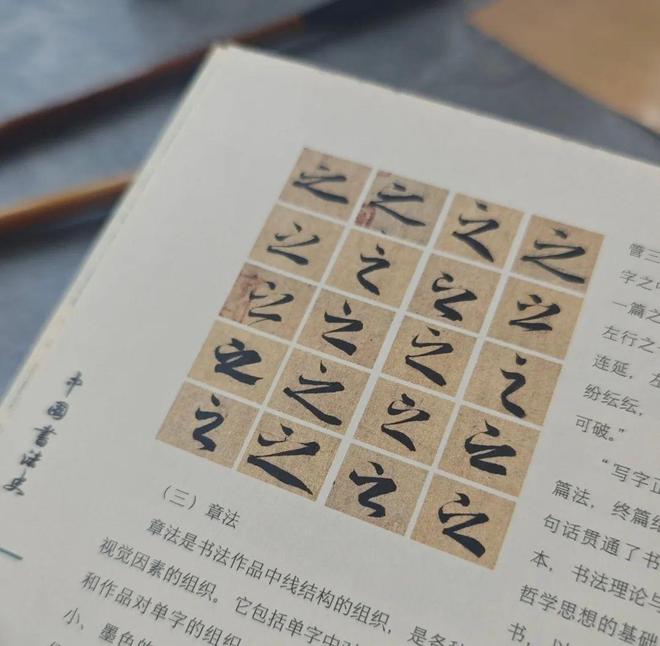 之 之 之 之
之 之 之 之
之 之 之 之
之 之 之 之
之 之 之 之
中国书法史
（三）章法
章法是书法作品中线结构的组织，是各
视觉因素的组织。它包括单字中
和作品对单字的组织
小、墨色的
管三
字之
一篇之
左行之
连延，左
纷纭纭，
可破。”
“写字正
篇法，终篇
句话贯通了书
本，书法理论与
哲学思想的基础
书，以